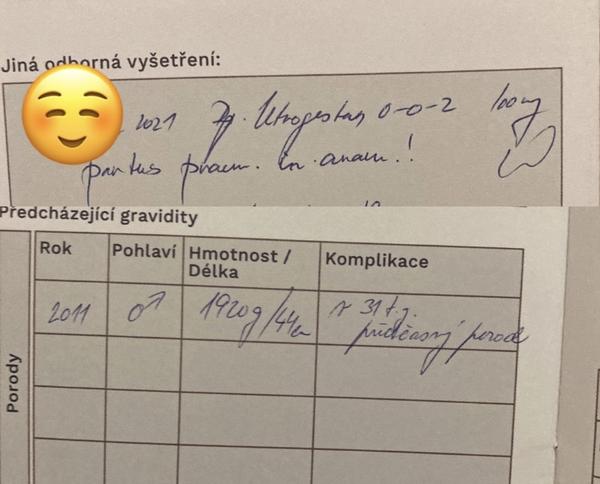 Jiná odborná vyšetření:
. 2021 Utrogestan 0-0-2 100mg
partus praem. in anam.!
Předcházející gravidity
Rok Pohlaví Hmotnost / Délka Komplikace
2011 ♂ 1920g/44cm v 31 t.g.
předčasný porod
Porody